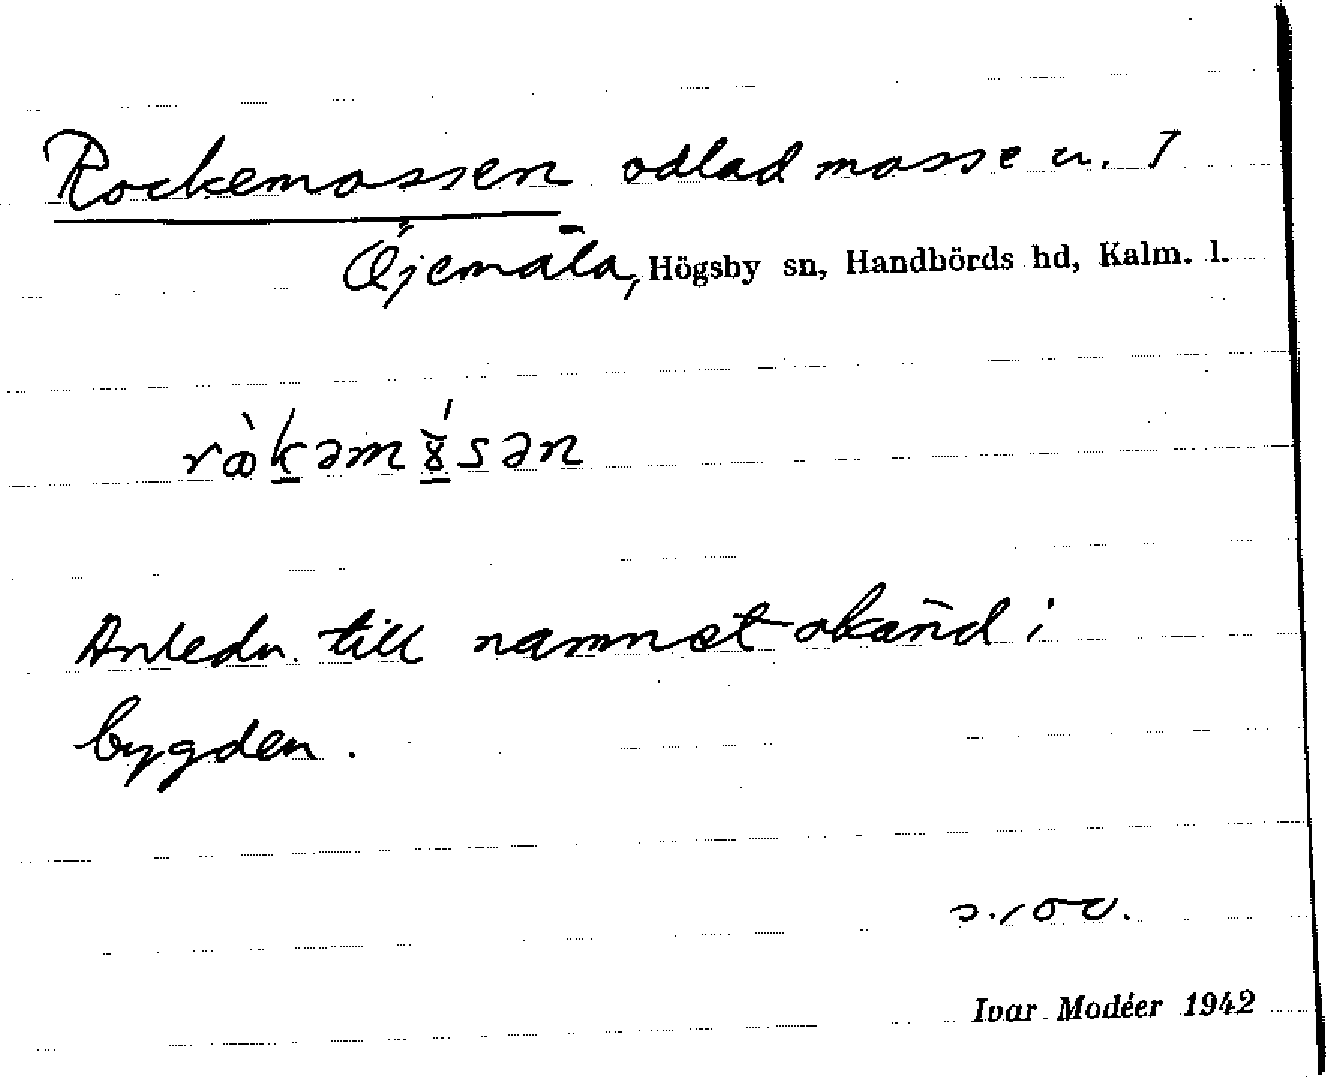 Rockemossen odlad mosse u. 1
Öjemåla, Högsby sn, Handbörds hd, Kalm. l.
Anledn. till namnet okänd i
bygden.
Ivar Modéer 1942